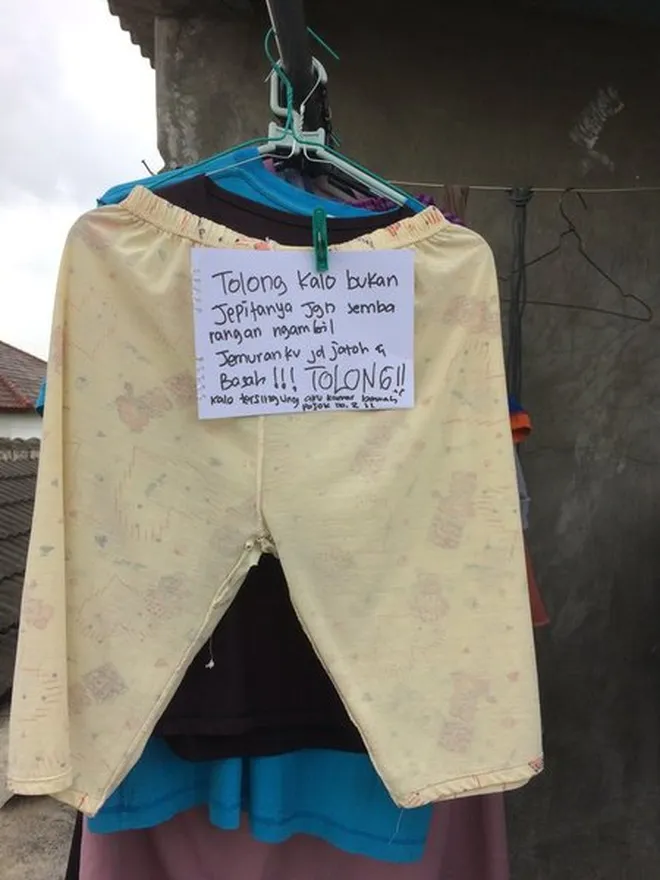 Tolong kalo bukan
Jepitanya Jgn semba
rangan ngambil
Jemuranku jd jatoh &
Basah !!! TOLONG!!
kalo tersinggung aku kamar bawah,
pojok no. 2